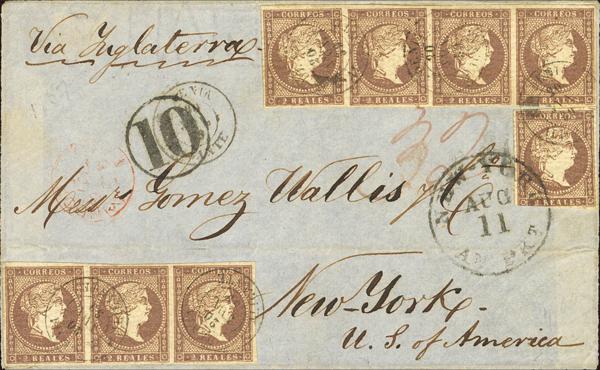 Via Inglaterra
CORREOS CORREOS CORREOS CORREOS
2 REALES 2 REALES 2 REALES 2 REALES
10
CORREOS
2 REALES
Messrs Gomez Wallis y Ca
NEW-YORK
AUG
11
AM. PKT
CORREOS CORREOS CORREOS
2 REALES 2 REALES 2 REALES
New-York.
U. S. of America